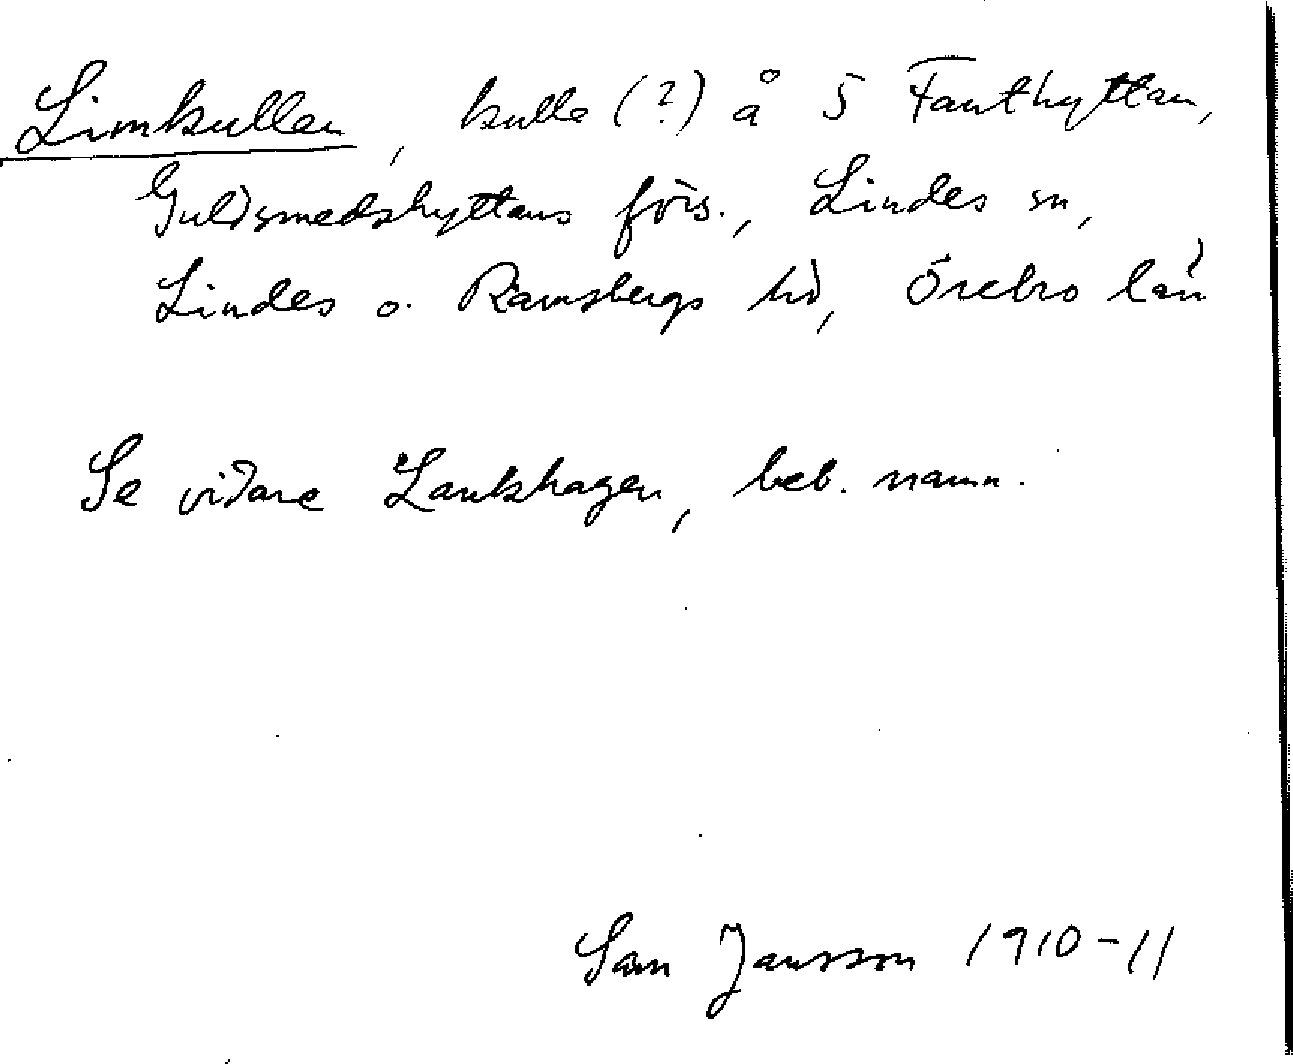 Limkullen, kulle (?) å 5 Fanthyttan,
Guldsmedshyttans förs., Lindes sn,
Lindes o. Ramsbergs hd, Örebro län
Se vidare Lankshagen, beb. namn.
Sam Jansson 1910-11